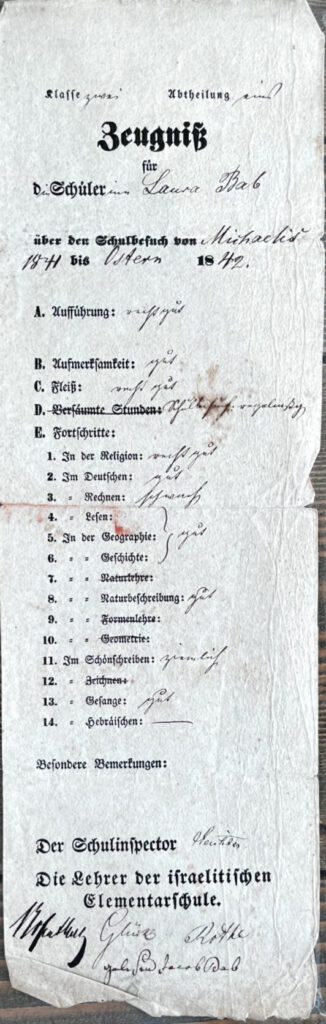 Klasse zwei Abtheilung eins
Zeugniß
für
die Schülerinn Laura Bab
über den Schulbesuch von Michaelis
1841 bis Ostern 1842.
A. Aufführung: recht gut
B. Aufmerksamkeit: gut
C. Fleiß: recht gut
D. Versäumte Stunden: Schulbesuch regelmäßig
E. Fortschritte:
1. In der Religion: recht gut
2. Im Deutschen: gut
3. " Rechnen: schwach
4. " Lesen:
5. In der Geographie: gut
6. " " Geschichte:
7. " " Naturlehre:
8. " " Naturbeschreibung: gut
9. " " Formenlehre:
10. " " Geometrie:
11. Im Schönschreiben: ziemlich
12. " Zeichnen:
13. " Gesange: gut
14. " Hebräischen: —
Besondere Bemerkungen:
Der Schulinspector
Die Lehrer der israelitischen
Elementarschule.
Rothe
gelesen Jacob Bab